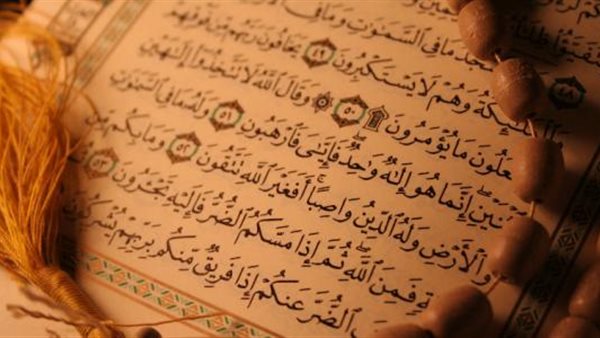 ٤٨ يَسْجُدُ مَا فِى ٱلسَّمَٰوَٰتِ وَمَا فِى
وَٱلْمَلَٰٓئِكَةُ وَهُمْ لَا يَسْتَكْبِرُونَ ٤٩ يَخَافُونَ رَبَّهُم مِّن فَوْقِهِمْ
عَلُونَ مَا يُؤْمَرُونَ ۩ ٥٠ ۞ وَقَالَ ٱللَّهُ لَا تَتَّخِذُوٓا۟ إِلَٰهَيْنِ
نَيْنِ إِنَّمَا هُوَ إِلَٰهٌ وَٰحِدٌ فَإِيَّٰىَ فَٱرْهَبُونِ ٥١ وَلَهُۥ مَا فِى ٱلسَّمَٰوَٰتِ
وَٱلْأَرْضِ وَلَهُ ٱلدِّينُ وَاصِبًا أَفَغَيْرَ ٱللَّهِ تَتَّقُونَ ٥٢ وَمَا بِكُم مِّن
ةٍ فَمِنَ ٱللَّهِ ثُمَّ إِذَا مَسَّكُمُ ٱلضُّرُّ فَإِلَيْهِ تَجْـَٔرُونَ ٥٣
فَ ٱلضُّرَّ عَنكُمْ إِذَا فَرِيقٌ مِّنكُم بِرَبِّهِمْ يُشْرِكُونَ